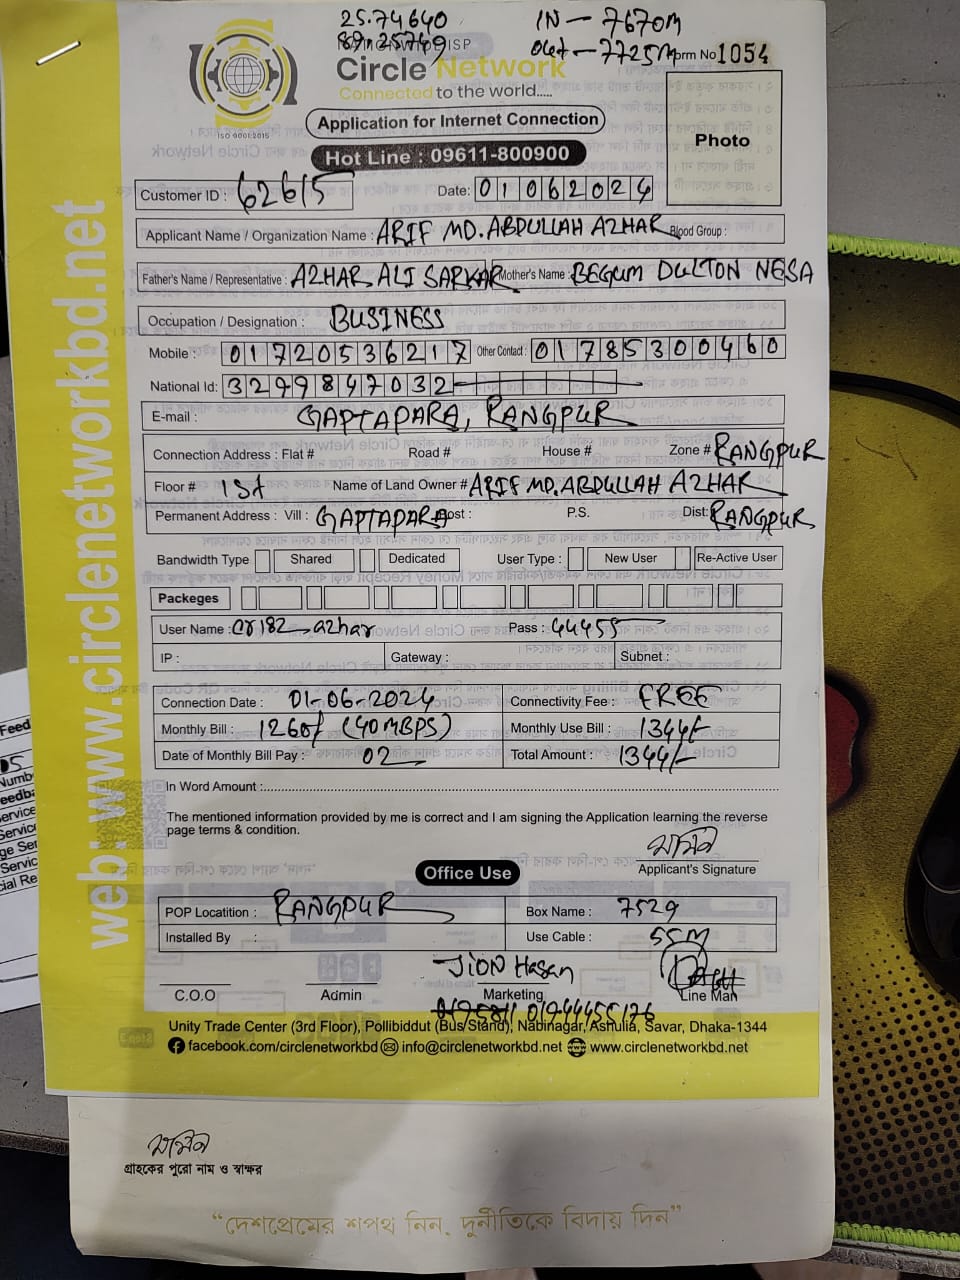 25.74640 IN - 7670m
89.25749 ISP Out - 7725m Form No 1054
Circle Network
Connected to the world.....
ISO 9001:2015
Application for Internet Connection
Photo
Hot Line : 09611-800900
Customer ID : 62615 Date: 01062024
Applicant Name / Organization Name : ARIF MD. ABDULLAH AZHAR Blood Group :
Father's Name / Representative : AZHAR ALI SARKAR Mother's Name : BEGUM DULTON NESA
Occupation / Designation : BUSINESS
Mobile : 01720536217 Other Contact : 01785300460
National Id: 3299847032
E-mail : GAPTAPARA, RANGPUR
Connection Address : Flat # Road # House # Zone # RANGPUR
Floor # 1st Name of Land Owner # ARIF MD. ABDULLAH AZHAR
Permanent Address : Vill : GAPTAPARA Post : P.S. Dist: RANGPUR
Bandwidth Type Shared Dedicated User Type : New User Re-Active User
Packeges
User Name : cr182_azhar Pass : 44455
IP : Gateway : Subnet :
Connection Date : 01-06-2024 Connectivity Fee : FREE
Monthly Bill : 1260/ (40 MBPS) Monthly Use Bill : 1344/-
Date of Monthly Bill Pay : 02 Total Amount : 1344/-
In Word Amount :
The mentioned information provided by me is correct and I am signing the Application learning the reverse
page terms & condition.
Applicant's Signature
Office Use
POP Locatition : RANGPUR Box Name : 7529
Installed By : Use Cable : 55M
Jion Hasan
C.O.O Admin Marketing Line Man
01944455176
Unity Trade Center (3rd Floor), Pollibiddut (Bus/Stand), Nabinagar, Ashulia, Savar, Dhaka-1344
facebook.com/circlenetworkbd info@circlenetworkbd.net www.circlenetworkbd.net
web: www.circlenetworkbd.net
গ্রাহকের পুরো নাম ও স্বাক্ষর
“দেশপ্রেমের শপথ নিন, দুর্নীতিকে বিদায় দিন”